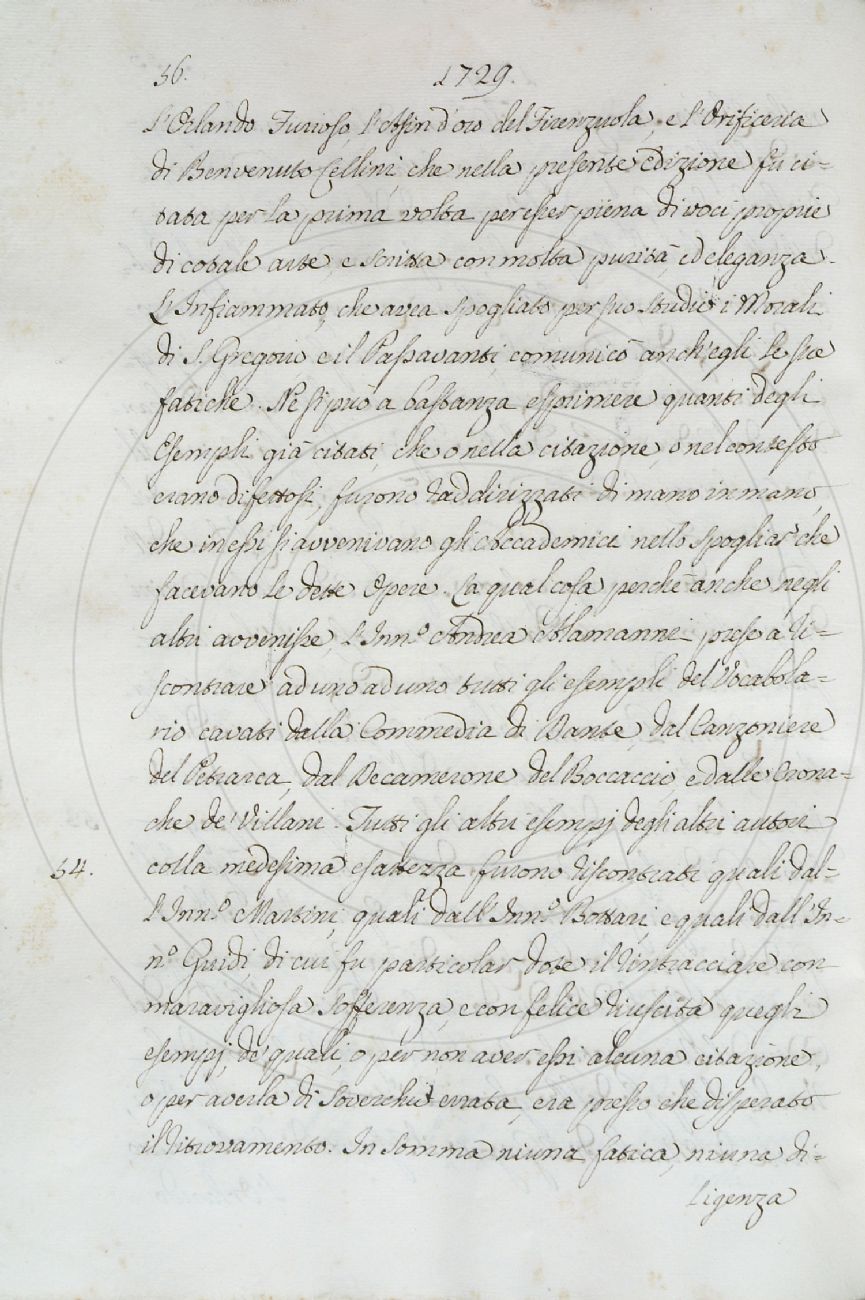 56.
1729.
L'Orlando Furioso, l'Asin d'oro del Firenzuola, e l'Orificeria
di Benvenuto Cellini, che nella presente Edizione fu ci=
tata per la prima volta per esser piena di voci proprie
di cotale arte, e scritta con molta purità, ed eleganza.
L'Infiammato, che avea spogliato per suo studio i Morali
di S. Gregorio e il Passavanti, comunicò anch'egli le sue
fatiche. Ne si può a bastanza esprimere quanti degli
Esempli già citati, che o nella citazione, o nel contesto
erano difettosi, furono raddirizzati di mano in mano,
che in essi si avvenivano gli Accademici nello spogliar, che
facevano le dette Opere. La qual cosa perchè anche negli
altri avvenisse, l'Inn.º Andrea Alamanni prese a ri=
scontrare ad uno ad uno tutti gli esempli del Vocabola=
rio cavati dalla Commedia di Dante, dal Canzoniere
del Petrarca, dal Decamerone del Boccaccio, e dalle Crona=
che de' Villani. Tutti gli altri esempj degli altri autori
54.
colla medesima esattezza furono riscontrati quali dal=
l'Inn.º Martini, quali dall'Inn.º Bottari, e quali dall'In=
n.º Guidi, di cui fu particolar dote il rintracciare con
maravigliosa sofferenza, e con felice riuscita quegli
esempj, de' quali, o per non aver essi alcuna citazione,
o per averla di soverchio errata, era presso che disperato
il ritrovamento. In somma niuna fatica, niuna di=
ligenza